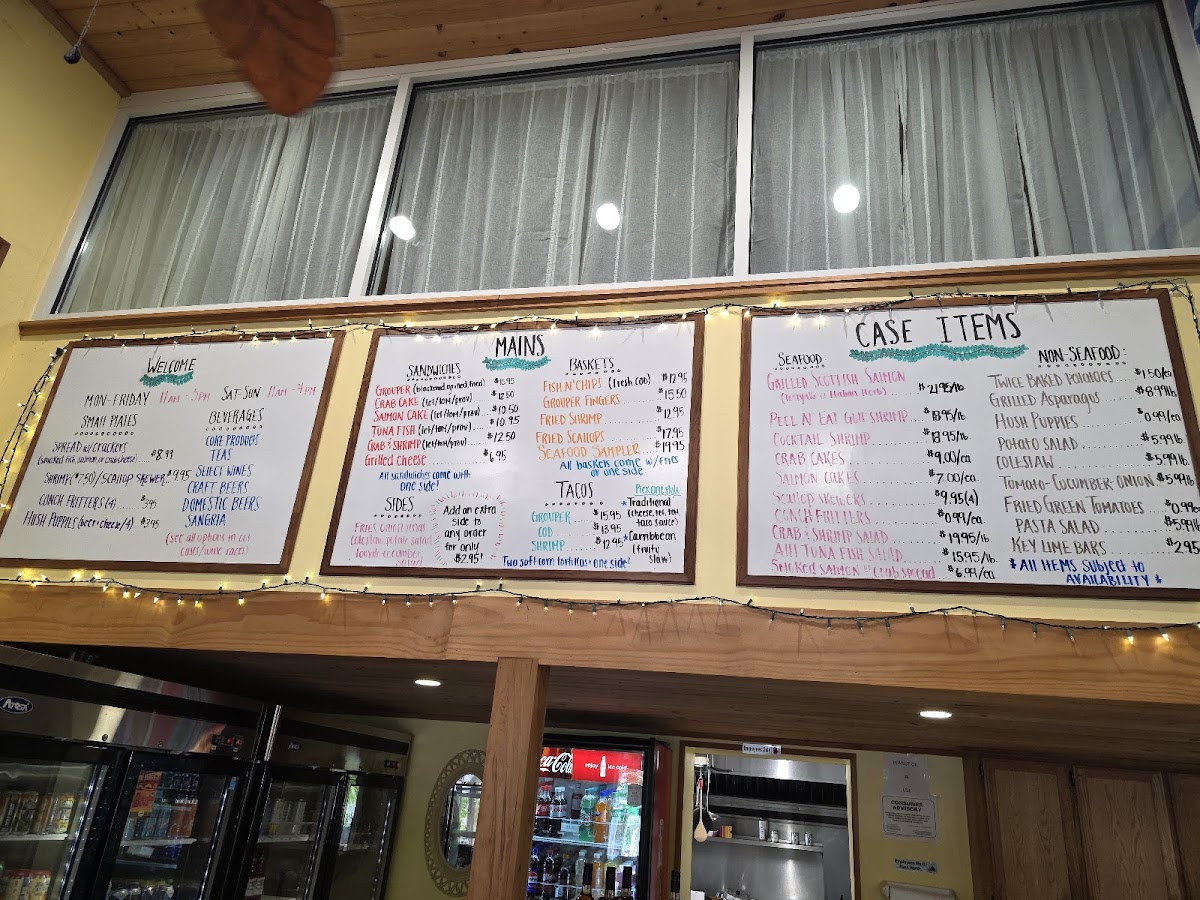 WELCOME
MON-FRIDAY 11AM-5PM SAT-SUN 11AM-4PM
SMALL PLATES
SPREAD w/ CRACKERS
(smoked fish, salmon or crab cheese) $8.99
SHRIMP ($7.50)/SCALLOP SKEWER $9.95
CONCH FRITTERS (4)
HUSH PUPPIES (beer+cheese/4)
BEVERAGES
COKE PRODUCTS
TEAS
SELECT WINES
CRAFT BEERS
DOMESTIC BEERS
SANGRIA
(see all options in our
cases/wine racks)
MAINS
SANDWICHES
GROUPER (blackened, grilled, fried) $15.95
CRAB CAKE (let/tom/prov) $12.50
SALMON CAKE (let/tom/prov) $10.50
TUNA FISH (let/tom/prov) $10.95
CRAB & SHRIMP (let/tom/prov) $12.50
Grilled Cheese $6.95
All sandwiches come with
one side!
SIDES
FRIES
Coleslaw, potato salad
tomato-cucumber
salad
Add an extra
side to
any order
for only
$2.95!
BASKETS
FISH N' CHIPS (fresh cod) $12.95
GROUPER FINGERS $15.50
FRIED SHRIMP $12.95
FRIED SCALLOPS $17.95
SEAFOOD SAMPLER $19.95
All baskets come w/ fries
or one side
TACOS
GROUPER $15.95
COD $13.95
SHRIMP $12.95
Pick one style:
*Traditional
(cheese, let, tom
taco sauce)
*Caribbean
(fruity
slaw)
Two soft corn tortillas + one side!
CASE ITEMS
SEAFOOD
GRILLED SCOTTISH SALMON $21.95/lb
(Teriyaki or Italian Herb)
PEEL N' EAT GULF SHRIMP $18.95/lb
COCKTAIL SHRIMP $18.95/lb
CRAB CAKES $9.00/ea
SALMON CAKES $7.00/ea
SCALLOP SKEWERS $9.95(4)
CONCH FRITTERS $0.99/ea
CRAB & SHRIMP SALAD $19.95/lb
AHI TUNA FISH SALAD $15.95/lb
SMOKED SALMON or CRAB SPREAD $6.99/ea
NON-SEAFOOD
TWICE BAKED POTATOES $1.50/ea
GRILLED Asparagus $8.99lb
HUSH PUPPIES $0.99/ea
POTATO SALAD $5.99lb
COLESLAW $5.99lb
TOMATO-CUCUMBER-ONION $5.99lb
FRIED GREEN TOMATOES
PASTA SALAD
KEY LIME BARS
* All ITEMS SUBJECT TO
AVAILABILITY *
Atosa
Atosa
Coca-Cola
enjoy ice cold
Employees Only
CONSUMER
ADVISORY
Employees Must
Wash Hands